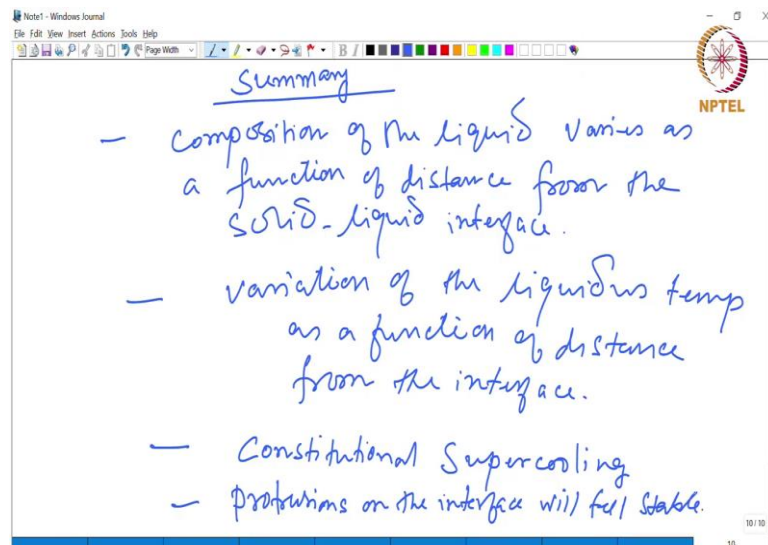 Note1 - Windows Journal
File Edit View Insert Actions Tools Help
Page Width
B I
NPTEL
Summary
- composition of the liquid varies as
a function of distance from the
solid-liquid interface.
- variation of the liquidus temp
as a function of distance
from the interface.
- Constitutional Supercooling
- protrusions on the interface will feel stable.
10 / 10
10